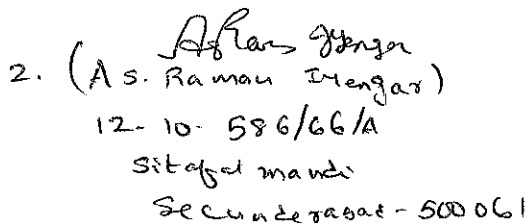 2. (A S. Raman Iyengar)
12-10-586/66/A
Sitafal mandi
Secunderabad - 500061